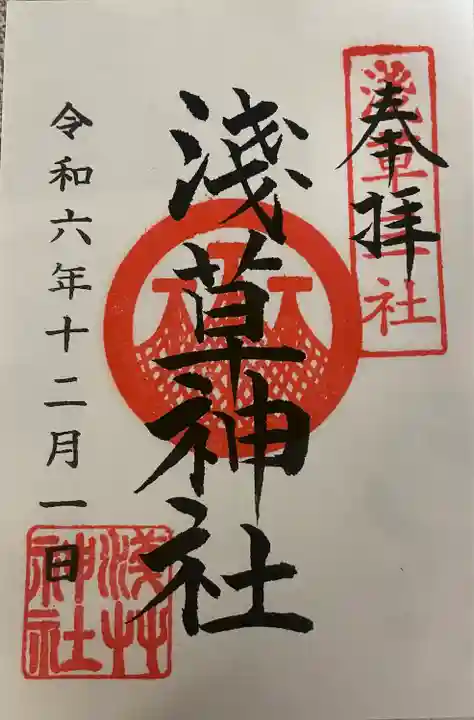 奉拝
淺草三社
淺草神社
令和六年十二月一日
淺草神社